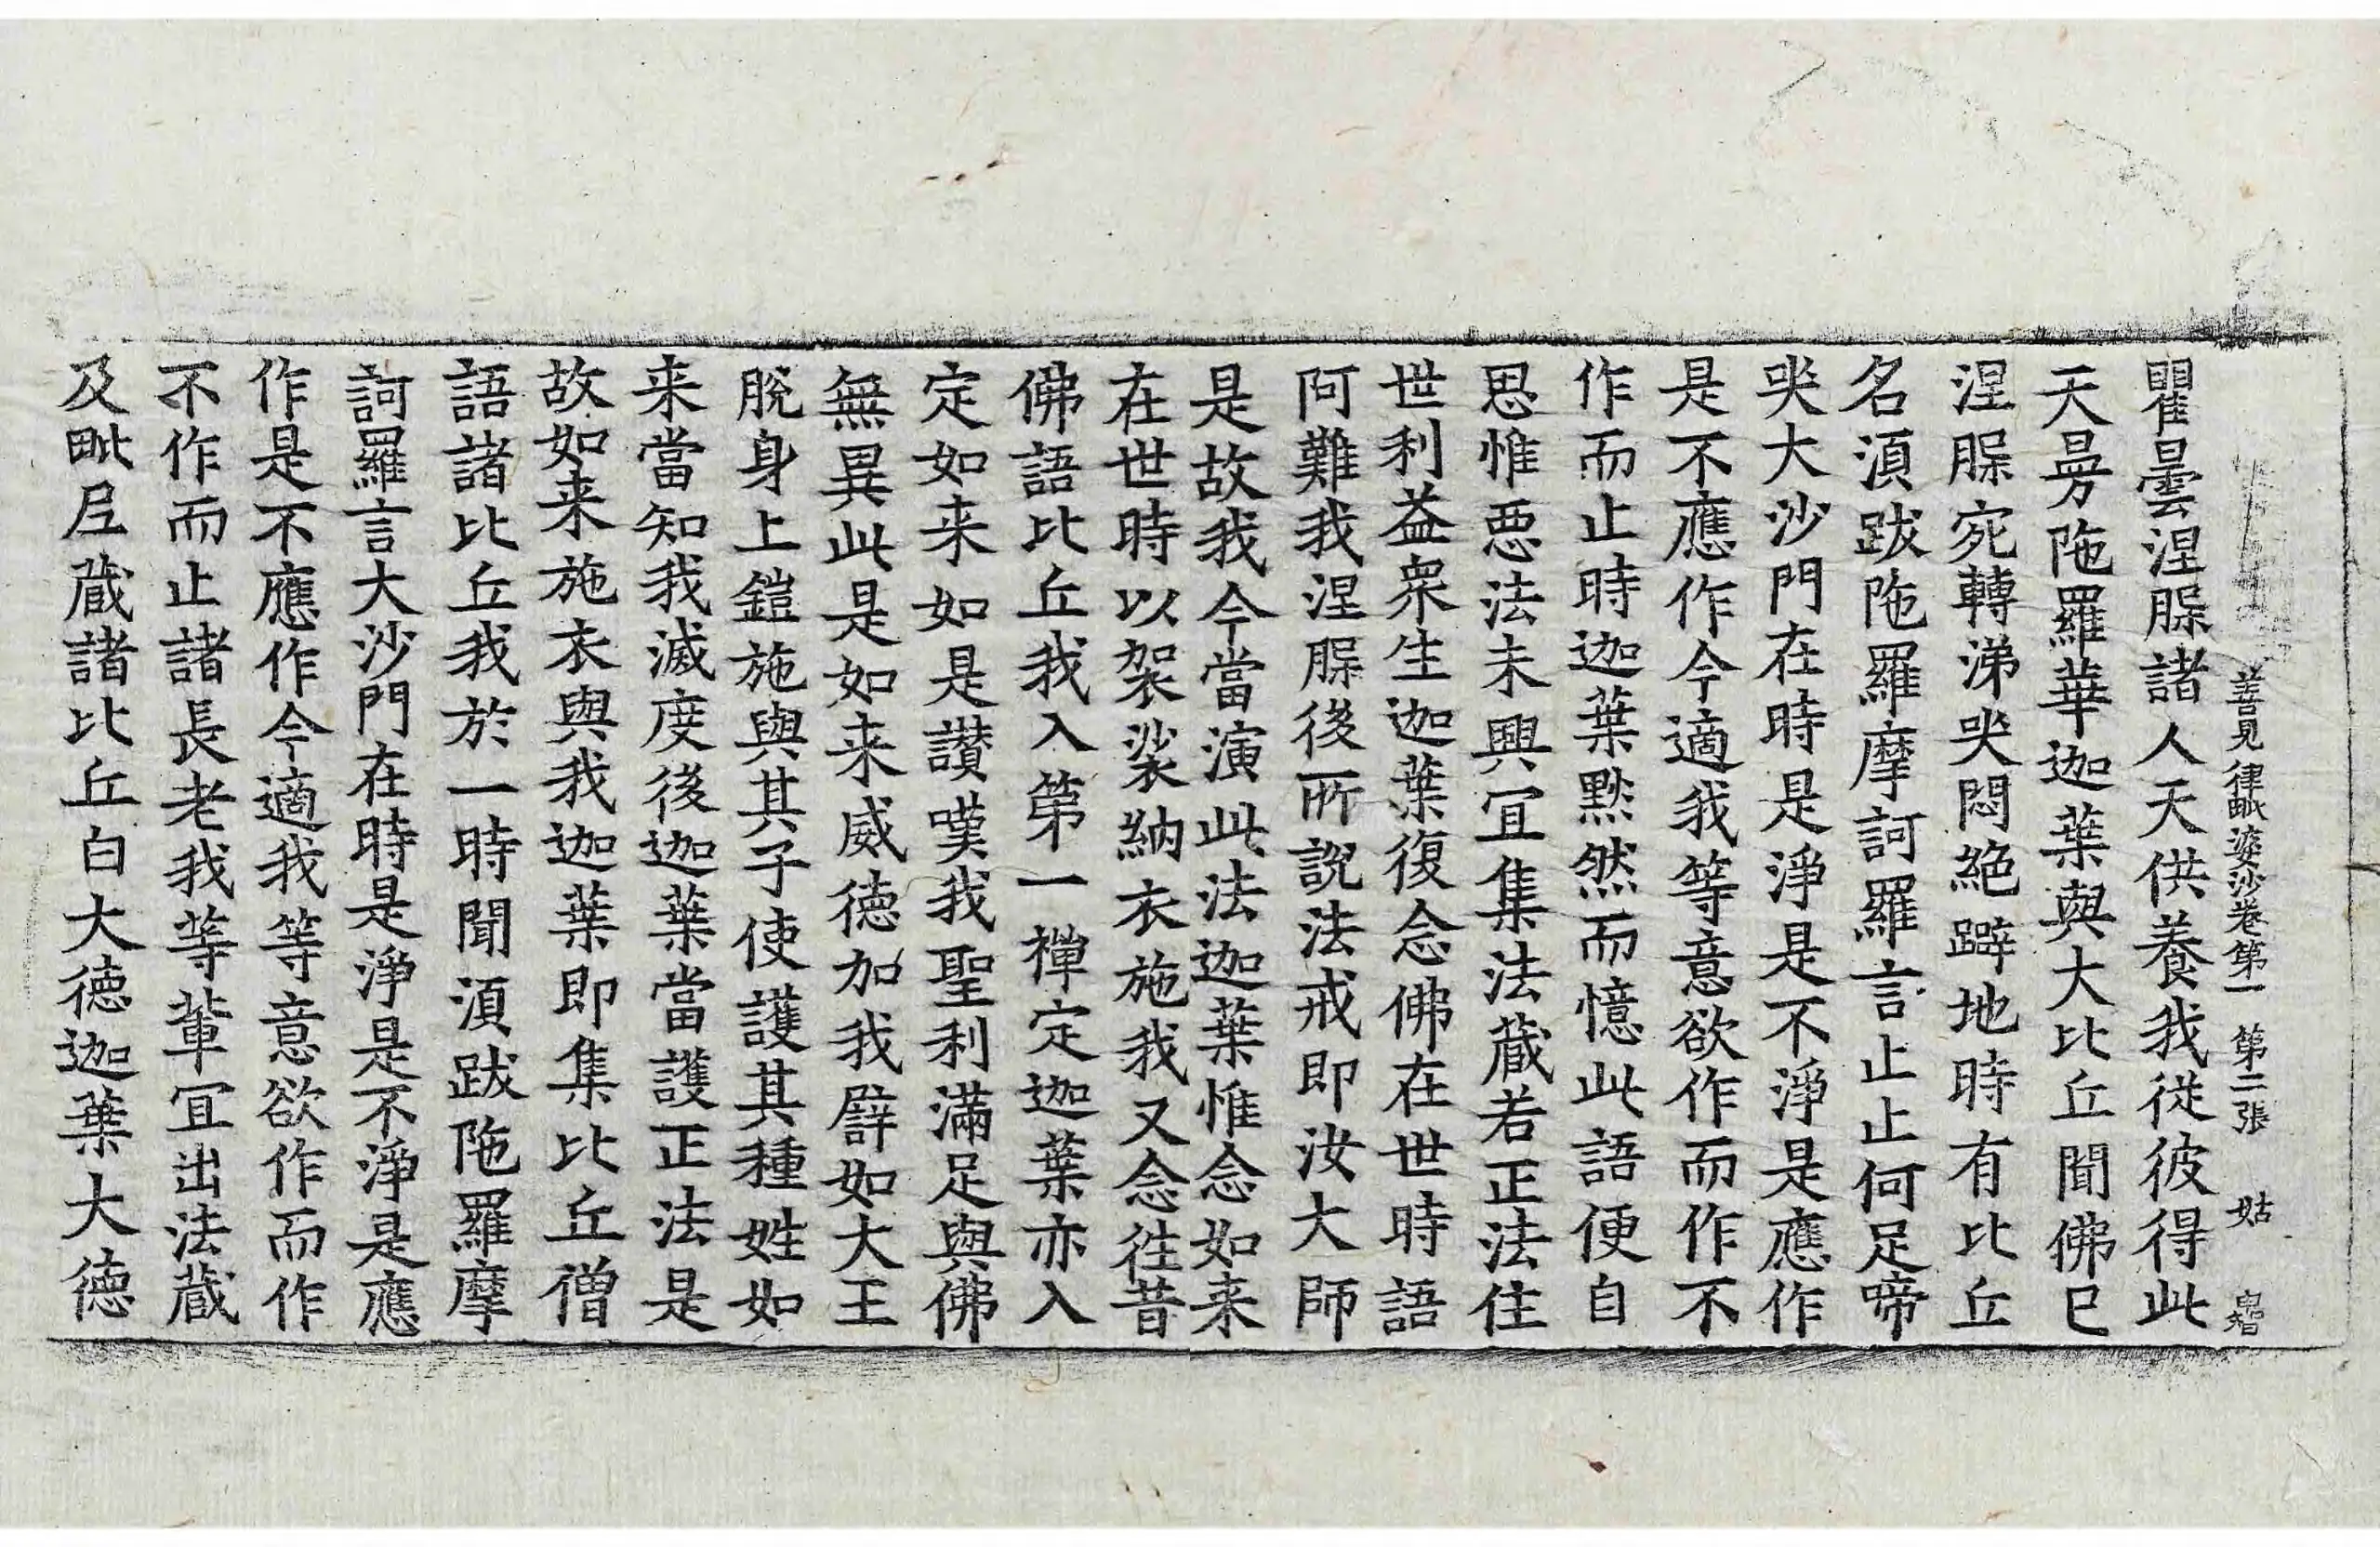 善見律毗婆沙卷第一 第二張 姑
瞿曇涅槃諸人天供養我從彼得此
天曼陁羅華迦葉與大比丘聞佛已
涅槃宛轉涕哭悶絕躃地時有比丘
名湏跋陁羅摩訶羅言止止何足啼
哭大沙門在時是淨是不淨是應作
是不應作今適我等意欲作而作不
作而止時迦葉黙然而憶此語便自
思惟惡法未興冝集法蔵若正法住
世利益衆生迦葉復念佛在世時語
阿難我涅槃後所說法戒即汝大師
是故我今當演此法迦葉惟念如来
在世時以袈裟納衣施我又念徃昔
佛語比丘我入第一禪定迦葉亦入
定如来如是讃嘆我聖利滿足與佛
無異此是如来威徳加我譬如大王
脫身上鎧施與其子使護其種姓如
来當知我滅度後迦葉當護正法是
故如来施衣與我迦葉即集比丘僧
語諸比丘我於一時聞湏跋陁羅摩
訶羅言大沙門在時是淨是不淨是應
作是不應作今適我等意欲作而作
不作而止諸長老我等軰冝出法蔵
及毗尼蔵諸比丘白大徳迦葉大徳